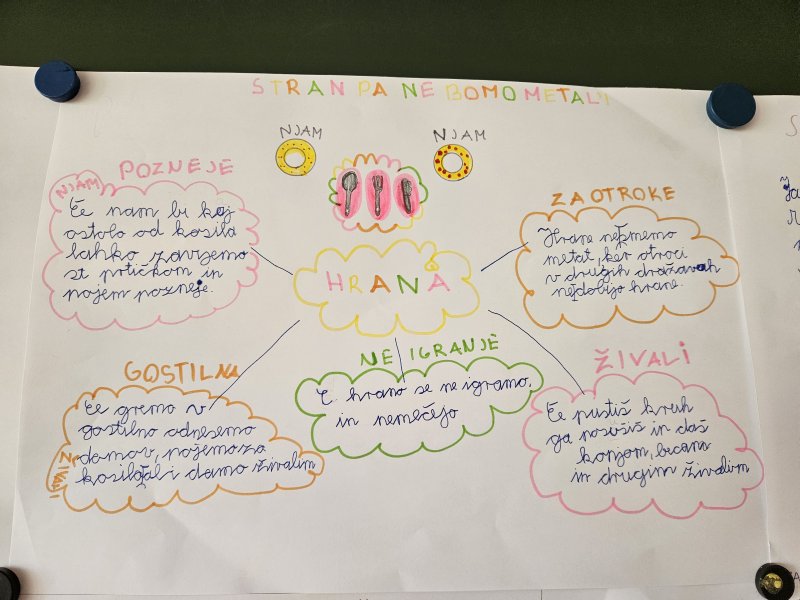 STRAN PA NE BOMO METALI
NJAM
NJAM
POZNEJE
NJAM
Če nam bi kaj
ostalo od kosila
lahko zavijemo
s prtičkom in
pojem pozneje.
ZA OTROKE
Hrane ne smemo
metat, ker otroci
v drugih državah
ne dobijo hrane.
HRANA
GOSTILNA
Če gremo v
gostilno odnesemo
domov, pojemo za
kosilo ali damo živalim
ŽIVALI
NE IGRANJE
Z hrano se ne igramo,
in nemečejo
ŽIVALI
Če pustiš kruh
ga posušiš in daš
konjom, kozam
in drugim živalim